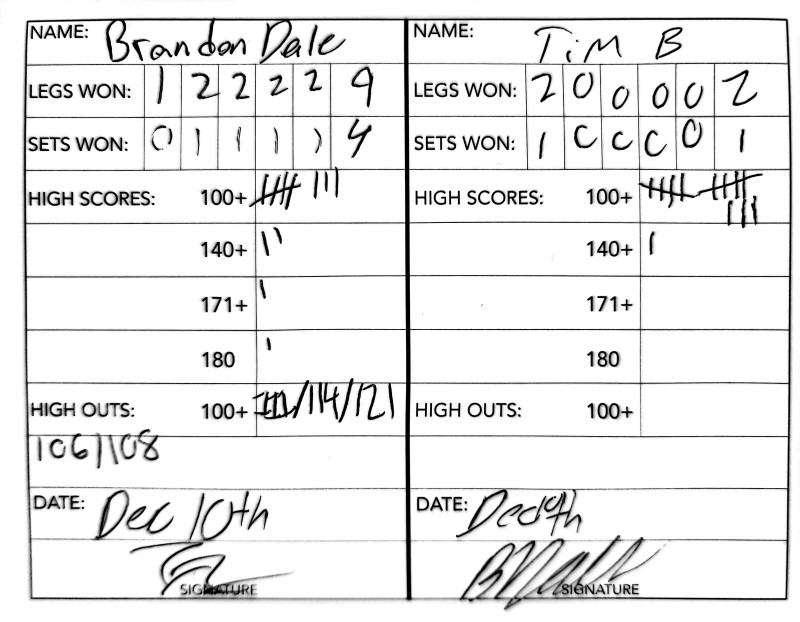 NAME: Brandon Dale
LEGS WON: 1 2 2 2 2 9
SETS WON: 0 1 1 1 1 4
HIGH SCORES: 100+ 卌 III
140+ II
171+ I
180 I
HIGH OUTS: 100+ /114/121
106/108
DATE: Dec 10th
SIGNATURE
NAME: TiM B
LEGS WON: 2 0 0 0 0 2
SETS WON: 1 0 0 0 0 1
HIGH SCORES: 100+ 卌 卌
III
140+ I
171+
180
HIGH OUTS: 100+
DATE:
SIGNATURE